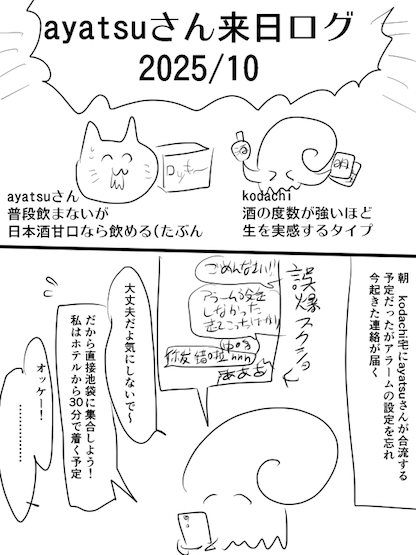 ayatsuさん来日ログ
2025/10
ayatsuさん
普段飲まないが
日本酒甘口なら飲める(たぶん
酒
kodachi
酒の度数が強いほど
生を実感するタイプ
朝 kodachi宅にayatsuさんが合流する
予定だったがアラームの設定を忘れ
今起きた連絡が届く
誤爆スクショ
ごめんなさい!!
アラーム設定
しなかった
大丈夫だよ気にしないで〜
だから直接池袋に集合しよう!
私はホテルから30分で着く予定
オッケー!
…………